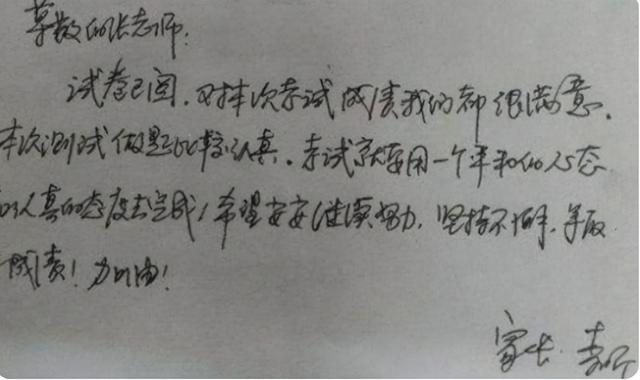 尊敬的张老师:
试卷已阅,对本次考试成绩我们都很满意.
本次测试做题比较认真.考试就要用一个平和的心态
以认真的态度去完成!希望安安继续努力,坚持不懈,争取
成绩!加油!
家长:李